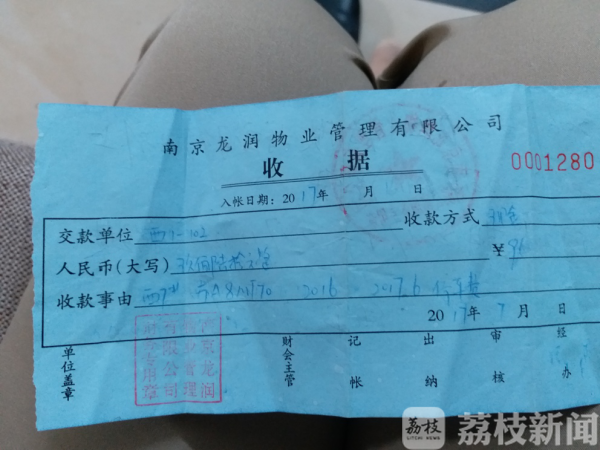 南京龙润物业管理有限公司
收 据
0001280
入帐日期：2017年 月 日
交款单位 西7-102 收款方式
人民币(大写) 玖佰陆拾元 ¥ 96
收款事由 2016 2017.6 停车费
2017年7月 日
单位盖章 财会主管 记帐 出纳 审核 经办
南京龙润
物业管理
有限公司
财务专用章
荔枝
LITCHI NEWS
荔枝新闻